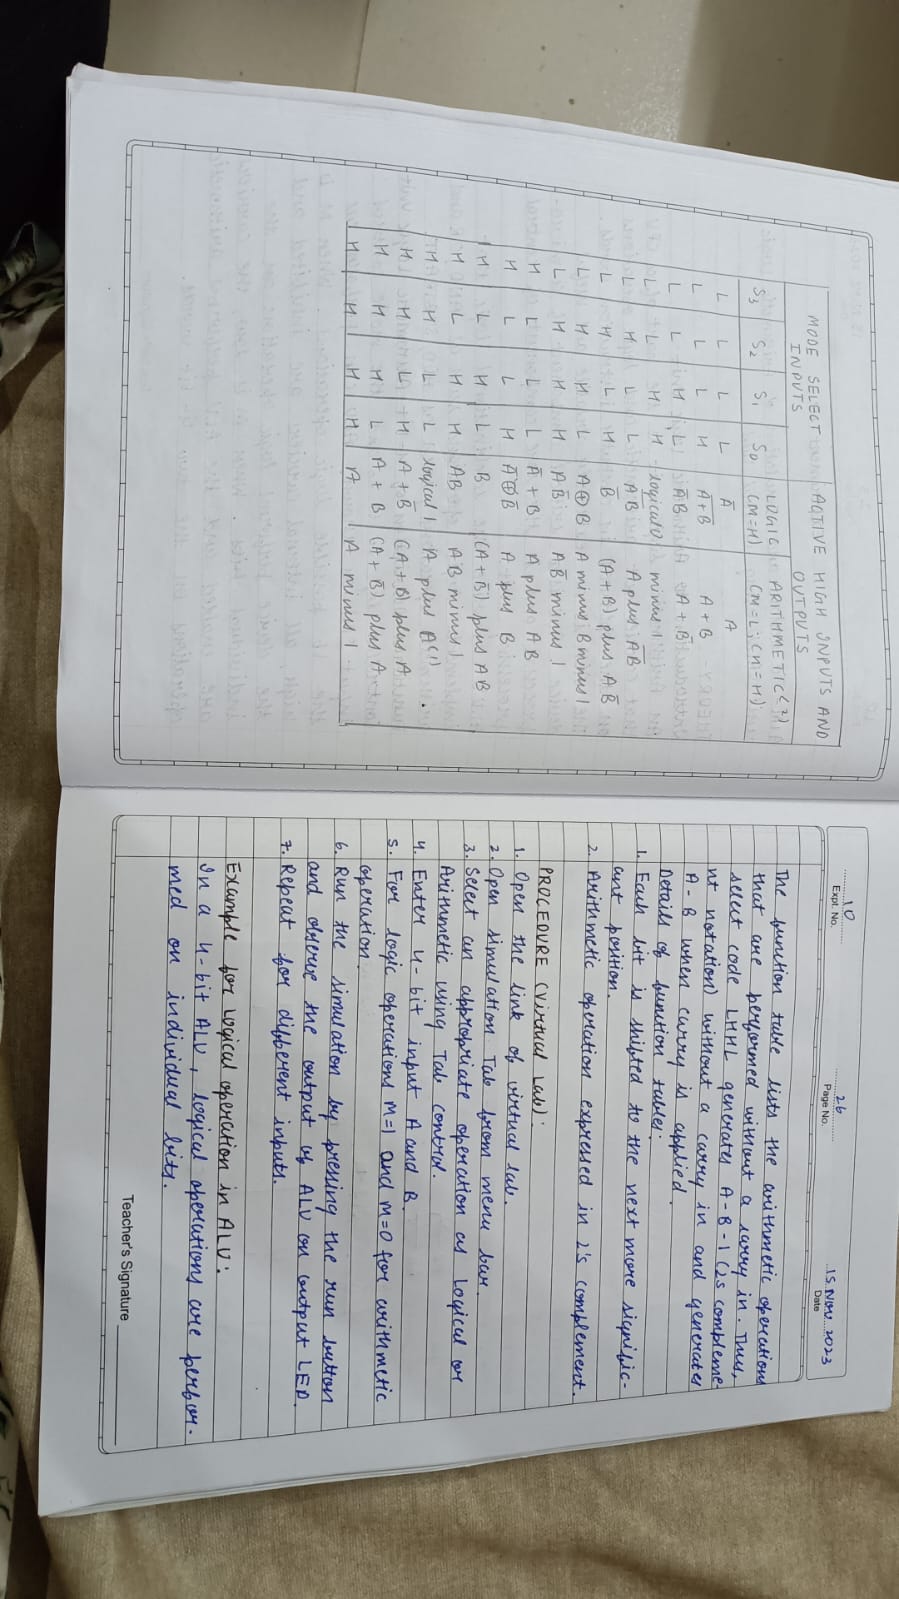 MODE SELECT INPUTS | ACTIVE HIGH INPUTS AND OUTPUTS
S₃ | S₂ | S₁ | S₀ | LOGIC (M=H) | ARITHMETIC⁽²⁾ (M=L; Cn=H)
L | L | L | L | A̅ | A
L | L | L | H | A̅+̅B̅ | A + B
L | L | H | L | A̅B | A + B̅
L | L | H | H | logical 0 | minus 1
L | H | L | L | A̅B̅ | A plus A̅B̅
L | H | L | H | B̅ | (A+B) plus A B̅
L | H | H | L | A⊕B | A minus B minus 1
L | H | H | H | AB̅ | AB̅ minus 1
H | L | L | L | A̅ + B | A plus AB
H | L | L | H | A̅⊕B̅ | A plus B
H | L | H | L | B | (A+B̅) plus AB
H | L | H | H | AB | AB minus 1
H | H | L | L | logical 1 | A plus A⁽¹⁾
H | H | L | H | A + B̅ | (A+B) plus A
H | H | H | L | A + B | (A+B̅) plus A
H | H | H | H | A | A minus 1
10
Expt. No.
26
Page No.
15 NOV 2023
Date
The function table lists the arithmetic operations
that are performed without a carry in. Thus,
select code LHHL generates A-B-1 (2s compleme-
nt notation) without a carry in and generates
A-B when carry is applied.
Details of function tables:
1. Each bit is shifted to the next more signific-
ant position.
2. Arithmetic operation expressed in 2's complement.
PROCEDURE (Virtual Lab):
1. Open the link of virtual lab.
2. Open simulation Tab from menu bar.
3. Select an appropriate operation as Logical or
Arithmetic using Tab control.
4. Enter 4-bit input A and B.
5. For logic operations M=1 and M=0 for arithmetic
operation.
6. Run the simulation by pressing the run button
and observe the output of ALU on output LED.
7. Repeat for different inputs.
Example for Logical operation in ALU:
In a 4-bit ALU, logical operations are perfor-
med on individual bits.
Teacher's Signature